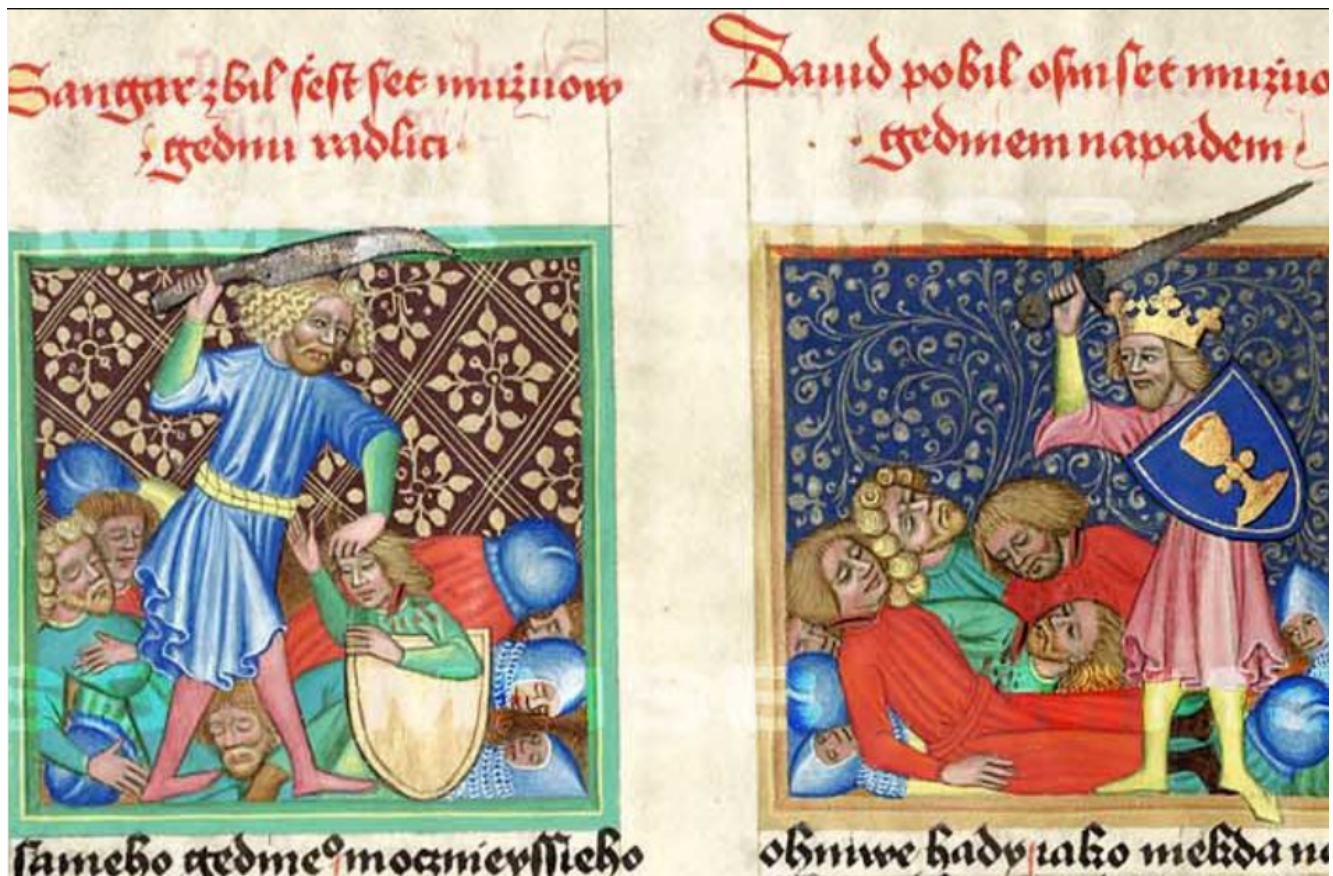 Sangar zbil ṡeſt ſet mużuow
gednu radlici
Dauid pobil oſm ſet mużuo
gedniem napadem
ſameho gedneº mocznieyſſieho
ohniwe hady iako niekda na